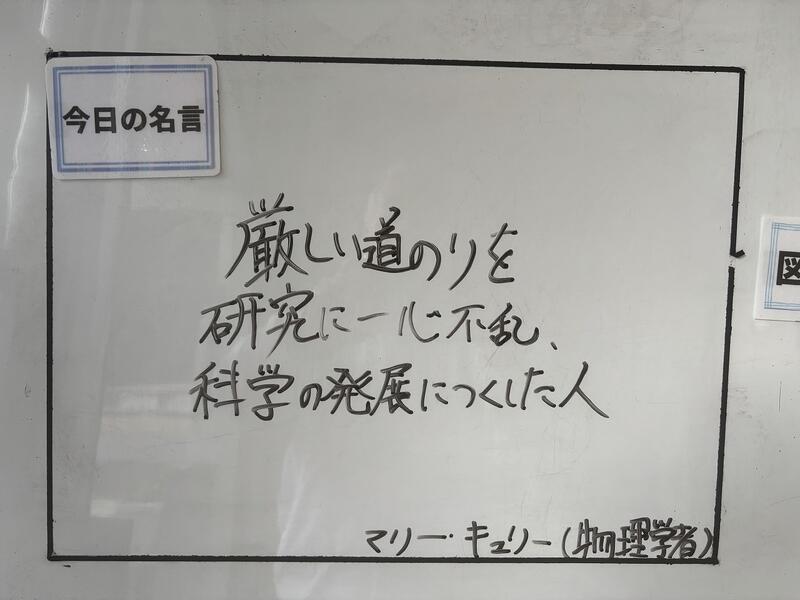 今日の名言
厳しい道のりを
研究に一心不乱、
科学の発展につくした人
マリー・キュリー(物理学者)
図